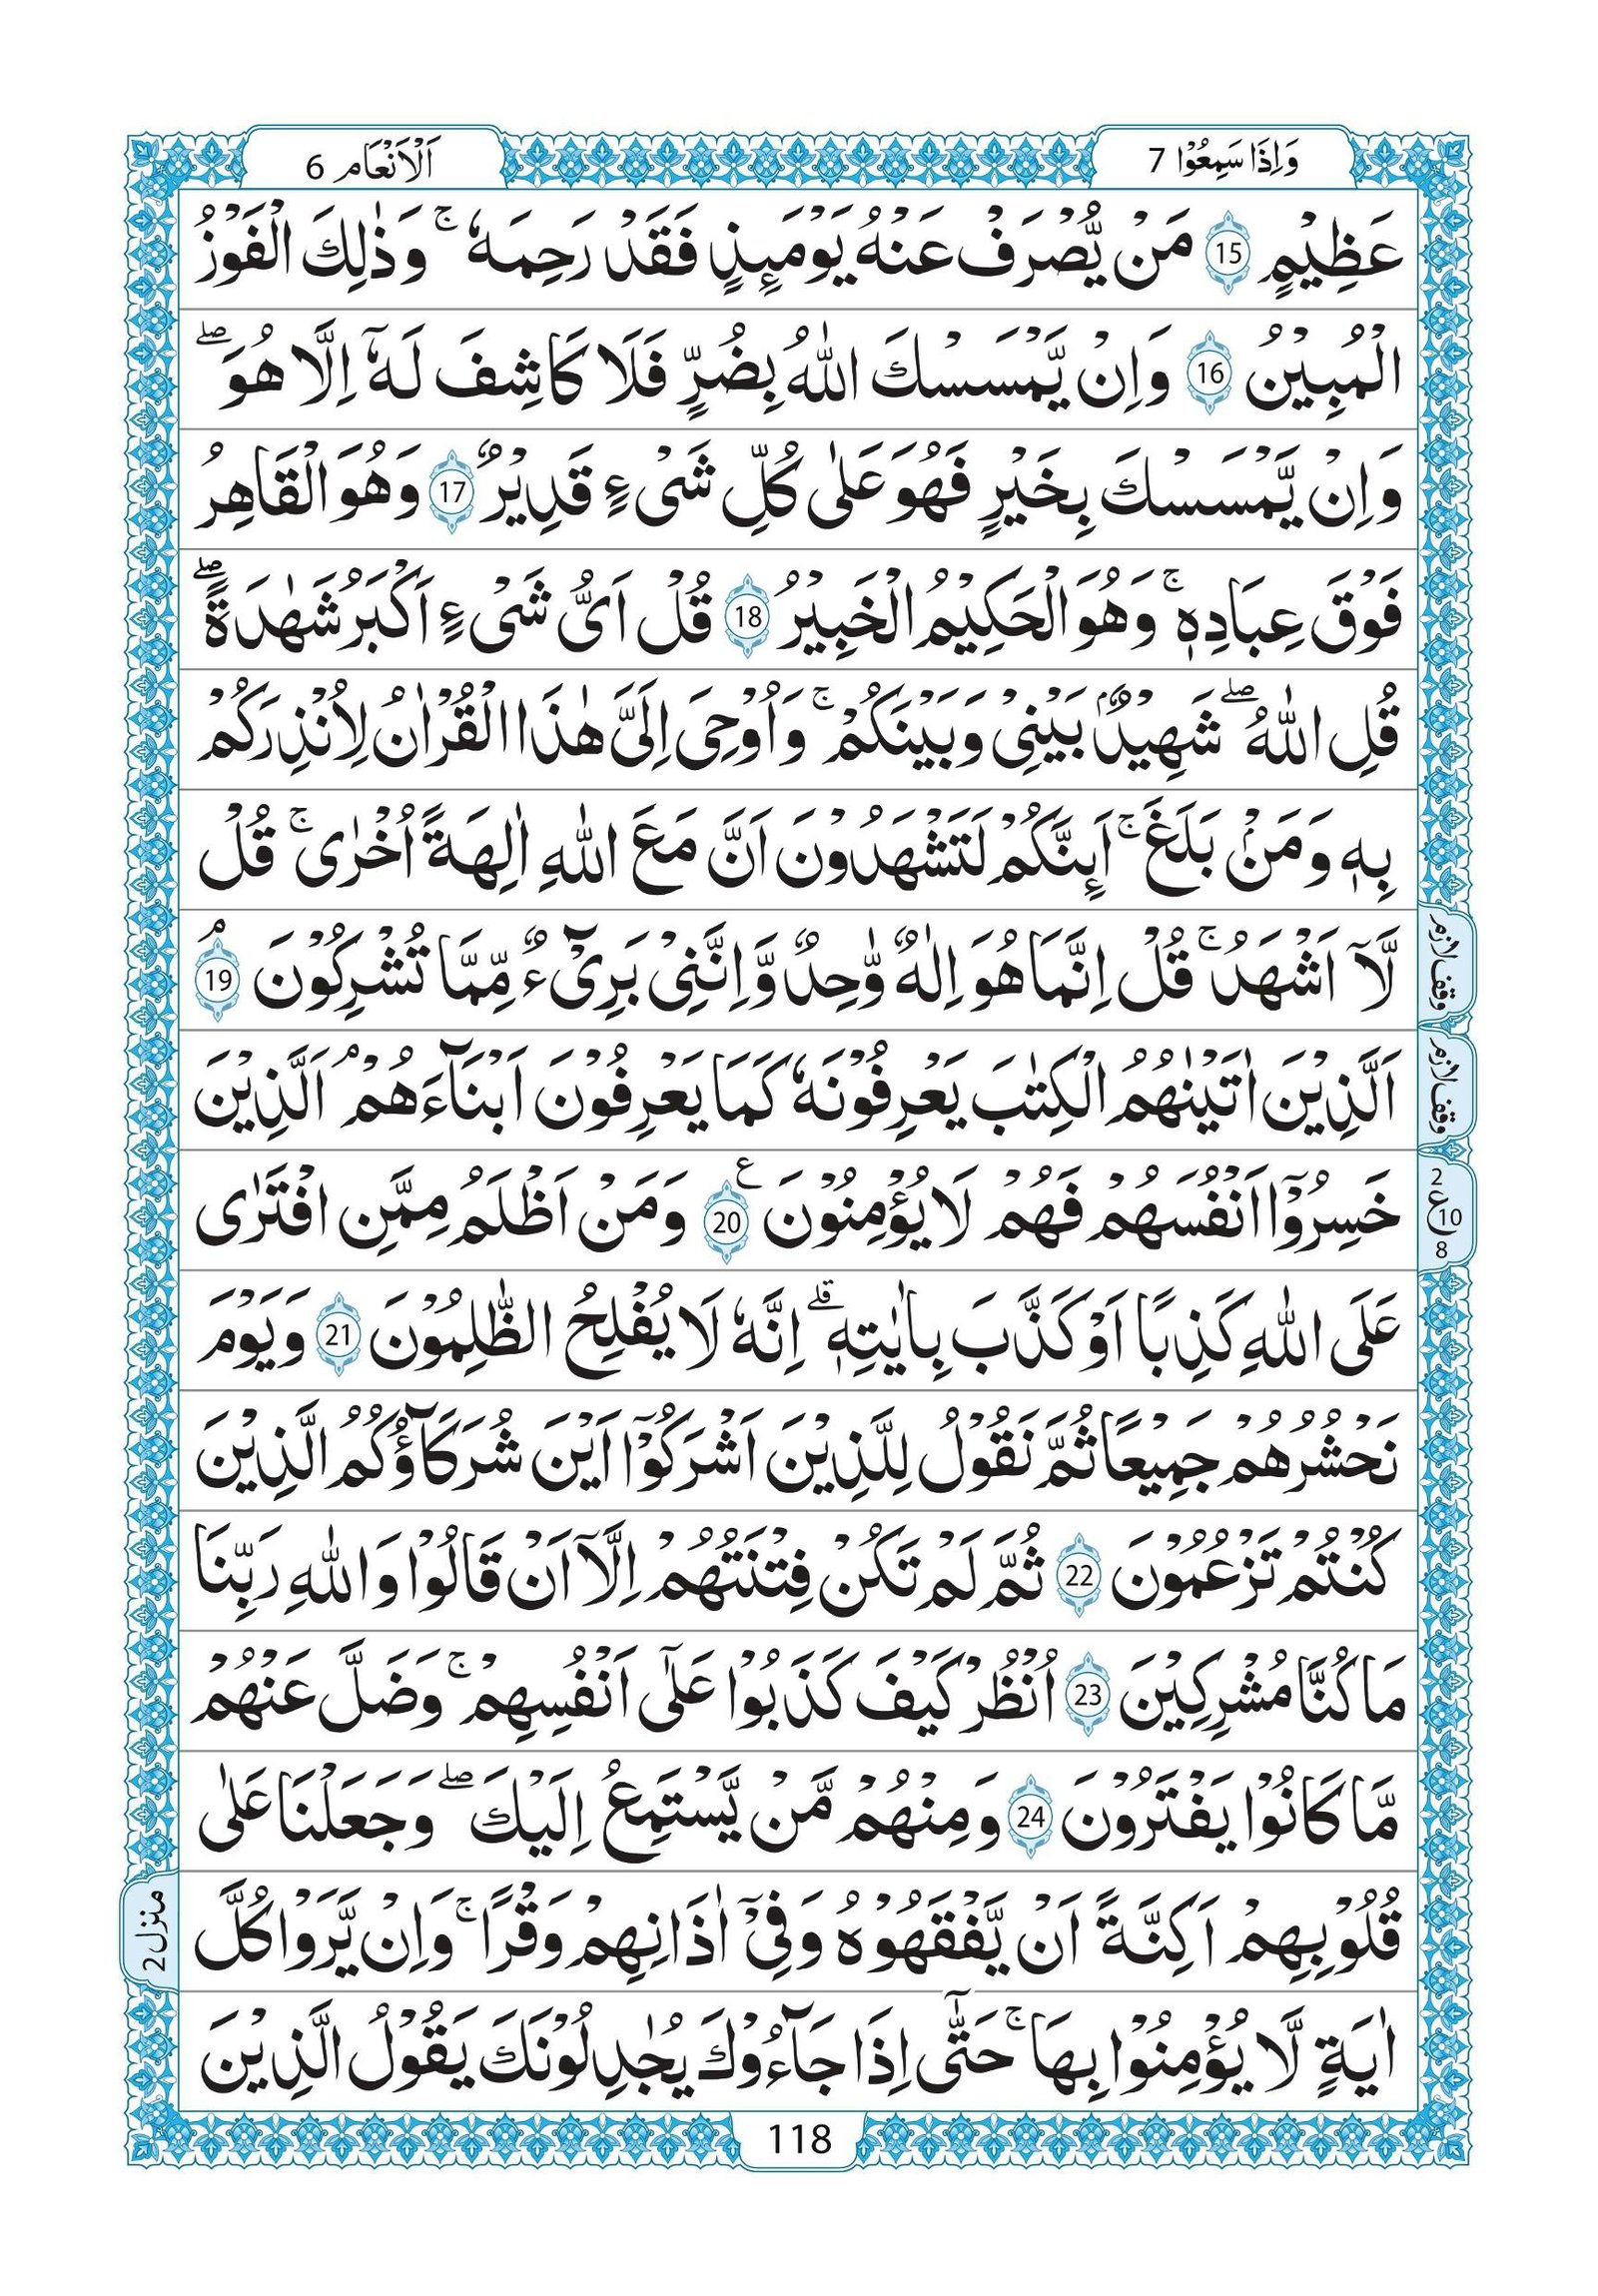 وَاِذَا سَمِعُوْا 7
اَلْاَنْعَام 6
عَظِيْمٍ 15 مَنْ يُّصْرَفْ عَنْهُ يَوْمَىِٕذٍ فَقَدْ رَحِمَهٗ ؕۚ وَذٰلِكَ الْفَوْزُ
الْمُبِيْنُ 16 وَاِنْ يَّمْسَسْكَ اللّٰهُ بِضُرٍّ فَلَا كَاشِفَ لَهٗۤ اِلَّا هُوَ ۖ
وَاِنْ يَّمْسَسْكَ بِخَيْرٍ فَهُوَ عَلٰى كُلِّ شَىْءٍ قَدِيْرٌ 17 وَهُوَ الْقَاهِرُ
فَوْقَ عِبَادِهٖ ۚ وَهُوَ الْحَكِيْمُ الْخَبِيْرُ 18 قُلْ اَىُّ شَىْءٍ اَكْبَرُ شَهٰدَةً ۖ
قُلِ اللّٰهُ ۖ شَهِيْدٌۢ بَيْنِىْ وَبَيْنَكُمْ ۚ وَاُوْحِىَ اِلَىَّ هٰذَا الْقُرْاٰنُ لِاُنْذِرَكُمْ
بِهٖ وَمَنْۢ بَلَغَ ۚ اَىِٕنَّكُمْ لَتَشْهَدُوْنَ اَنَّ مَعَ اللّٰهِ اٰلِهَةً اُخْرٰى ۚ قُلْ
لَّاۤ اَشْهَدُ ۚ قُلْ اِنَّمَا هُوَ اِلٰهٌ وَّٰحِدٌ وَّاِنَّنِىْ بَرِىْٓءٌ مِّمَّا تُشْرِكُوْنَ ۘ 19
وقف لازم
اَلَّذِيْنَ اٰتَيْنٰهُمُ الْكِتٰبَ يَعْرِفُوْنَهٗ كَمَا يَعْرِفُوْنَ اَبْنَآءَهُمْ ۘ اَلَّذِيْنَ
وقف لازم
خَسِرُوْۤا اَنْفُسَهُمْ فَهُمْ لَا يُؤْمِنُوْنَ 20 ع وَمَنْ اَظْلَمُ مِمَّنِ افْتَرٰى
2 ع 10 8
عَلَى اللّٰهِ كَذِبًا اَوْ كَذَّبَ بِاٰيٰتِهٖ ۗ اِنَّهٗ لَا يُفْلِحُ الظّٰلِمُوْنَ 21 وَيَوْمَ
نَحْشُرُهُمْ جَمِيْعًا ثُمَّ نَقُوْلُ لِلَّذِيْنَ اَشْرَكُوْۤا اَيْنَ شُرَكَآؤُكُمُ الَّذِيْنَ
كُنْتُمْ تَزْعُمُوْنَ 22 ثُمَّ لَمْ تَكُنْ فِتْنَتُهُمْ اِلَّاۤ اَنْ قَالُوْا وَاللّٰهِ رَبِّنَا
مَا كُنَّا مُشْرِكِيْنَ 23 اُنْظُرْ كَيْفَ كَذَبُوْا عَلٰٓى اَنْفُسِهِمْ ۚ وَضَلَّ عَنْهُمْ
مَّا كَانُوْا يَفْتَرُوْنَ 24 وَمِنْهُمْ مَّنْ يَّسْتَمِعُ اِلَيْكَ ۖ وَجَعَلْنَا عَلٰى
قُلُوْبِهِمْ اَكِنَّةً اَنْ يَّفْقَهُوْهُ وَفِىْۤ اٰذَانِهِمْ وَقْرًا ۚ وَاِنْ يَّرَوْا كُلَّ
منزل 2
اٰيَةٍ لَّا يُؤْمِنُوْا بِهَا ۚ حَتّٰٓى اِذَا جَآءُوْكَ يُجٰدِلُوْنَكَ يَقُوْلُ الَّذِيْنَ
118